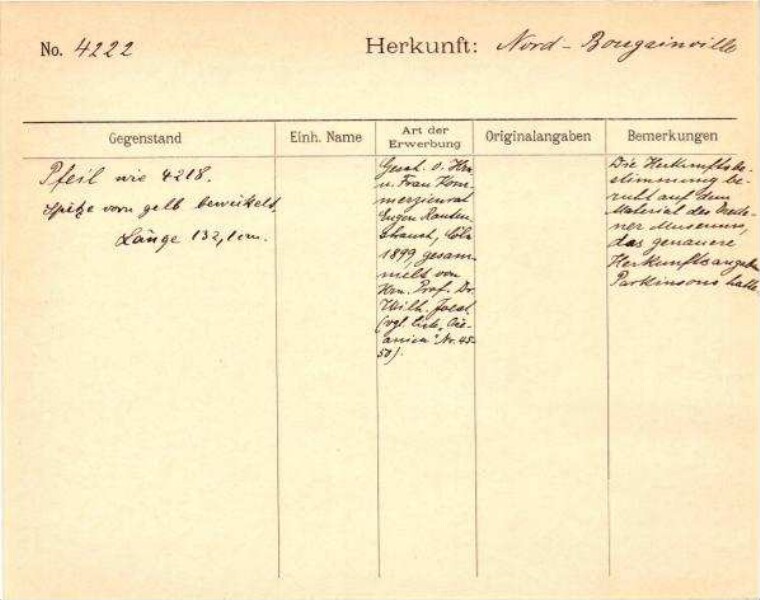 No. 4222
Herkunft: Nord-Bougainville
Gegenstand
Einh. Name
Art der
Erwerbung
Originalangaben
Bemerkungen
Pfeil wie 4218.
Spitze vorn gelb bewickelt.
Länge 132,1 cm.
Gesch. v. Hrn
u. Frau Kom-
merzienrat
Eugen Rauten-
strauch, Cöln
1899, gesam-
melt von
Hrn. Prof. Dr.
Wilh. Joest
(vgl. Etik. „Oce-
anien" Nr. 45-
50).
Die Herkunftsbe-
stimmung be-
ruht auf dem
Material des Dresde-
ner Museums,
das genauere
Herkunftsangaben
Parkinsons hatte.